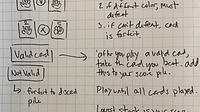 2. if different color, must
defeat
3. if can't defeat, card
is forfeit
Valid card
→ after you play a valid card,
take the card you beat. add
this to your score pile.
Not Valid
↳ forfeit to discard
pile
Play until all cards played.